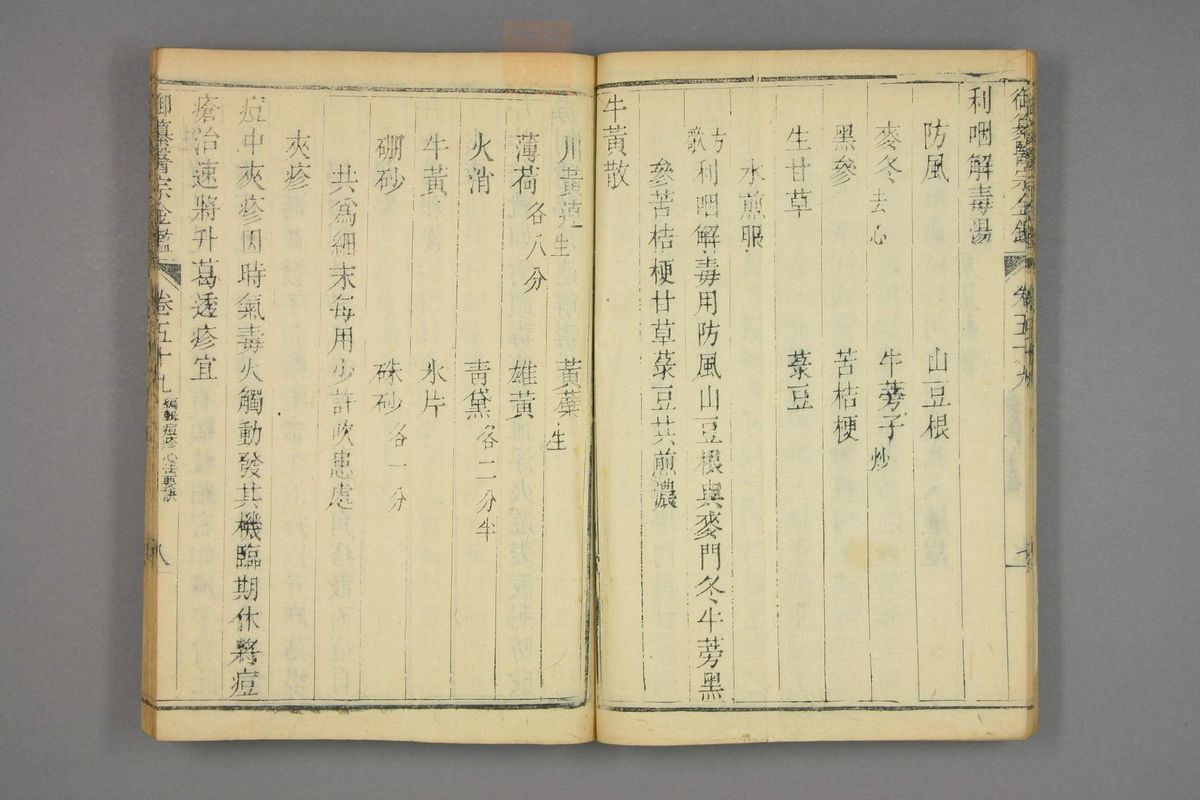 御纂醫宗金鑑 卷五十九
利咽解毒湯
防風 山豆根
麥冬去心 牛蒡子炒
黑參 苦桔梗
生甘草 菉豆
水煎服
方歌 利咽解毒用防風山豆根與麥門冬牛蒡黑
參苦桔梗甘草菉豆共煎濃
牛黃散
川黃連生 黃蘗生
薄荷各八分 雄黃
火消 青黛各二分半
牛黃 氷片
硼砂 硃砂各一分
共為細末每用少許吹患處
夾疹
痘中夾疹因時氣毒火觸動發其機臨期休將痘
瘡治速將升葛透疹宜
御纂醫宗金鑑 卷五十九 編輯痘疹心法要訣 八